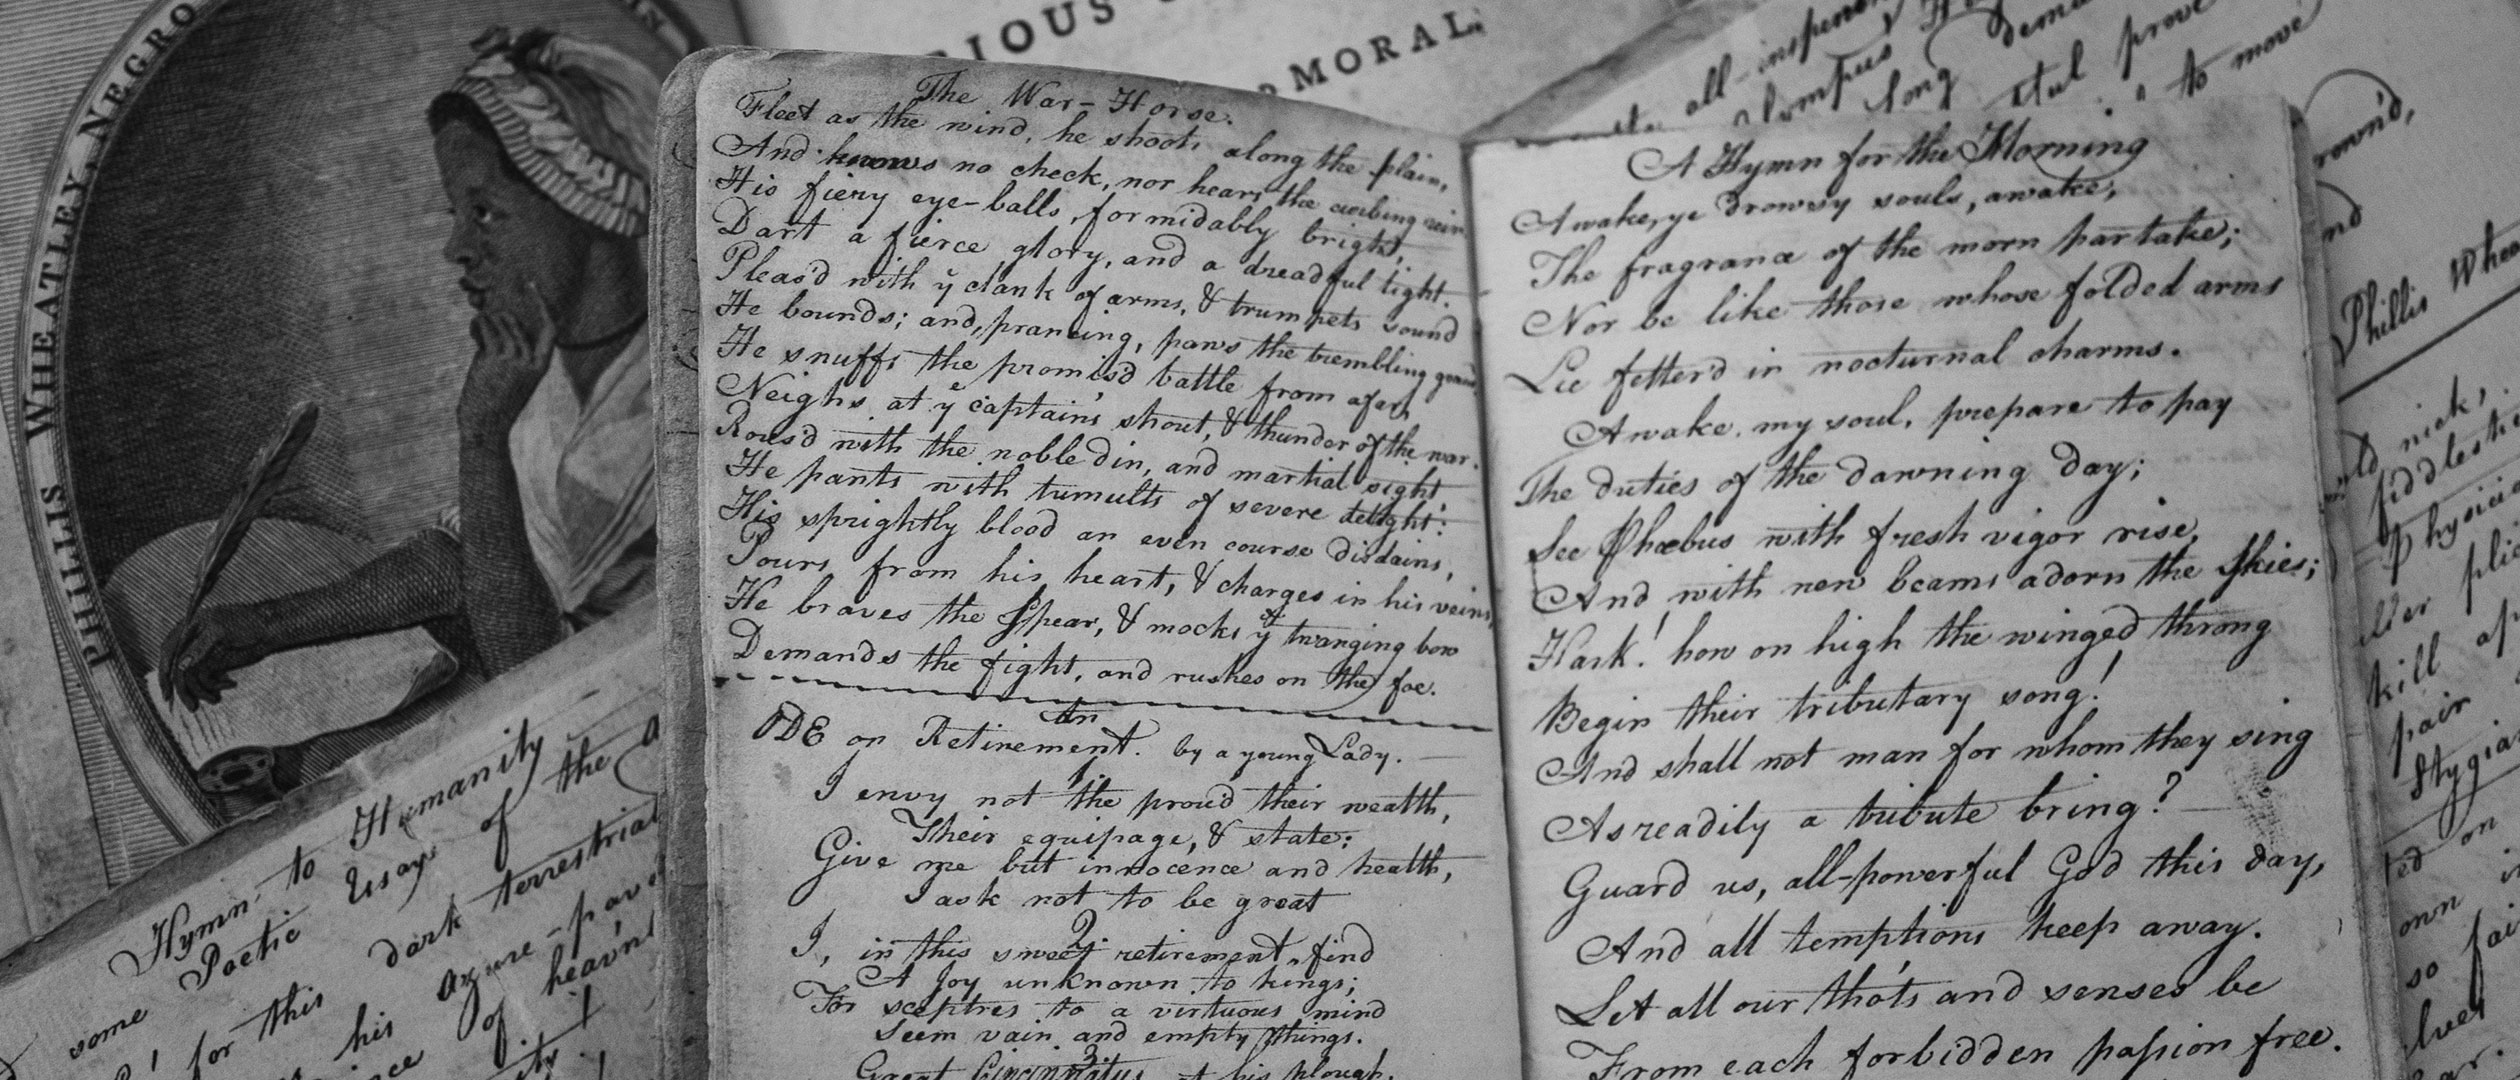 PHILLIS WHEATLEY, NEGRO
RIOUS
MORAL.
Hymn to Humanity
some Poetic Essays of the
for this dark terrestrial
his azure-pav
of heav'n
The War-Horse.
Fleet as the wind, he shoots along the plain,
And knows no check, nor hears the curbing rein
His fiery eye-balls, formidably bright,
Dart a fierce glory, and a dreadful light.
Pleas'd with ye clank of arms, & trumpets sound
He bounds; and, prancing, paws the trembling ground
He snuffs the promis'd battle from afar,
Neighs at ye captain's shout, & thunder of the war.
Rous'd with the noble din, and martial sight,
He pants with tumults of severe delight!
His sprightly blood an even course disdains,
Pours from his heart, & charges in his veins,
He braves the Spear, & mocks ye twanging bow
Demands the fight, and rushes on the foe.
An
ODE on Retirement. by a young Lady.
1
I envy not the proud their wealth,
Their equipage, & state:
Give me but innocence and health,
I ask not to be great
2
I, in this sweet retirement, find
A joy unknown to kings;
For sceptres to a virtuous mind
Seem vain and empty things.
3
Great Cincinnatus at his plough,
A Hymn for the Morning
Awake, ye drowsy souls, awake,
The fragrance of the morn partake;
Nor be like those whose folded arms
Lie fetter'd in nocturnal charms.
Awake, my soul, prepare to pay
The duties of the dawning day;
See Phœbus with fresh vigor rise,
And with new beams adorn the Skies;
Hark! how on high the winged throng
Begin their tributary song!
And shall not man for whom they sing
As readily a tribute bring?
Guard us, all-powerful God this day,
And all temptions keep away.
Let all our tho'ts and senses be
From each forbidden passion free.
all-inspen
long dem
prove
to move
rown'd,
nd
Phillis Whea
nick,
fiddlesti
Physici
kill
pair
Stygia
ed on
own
so fai